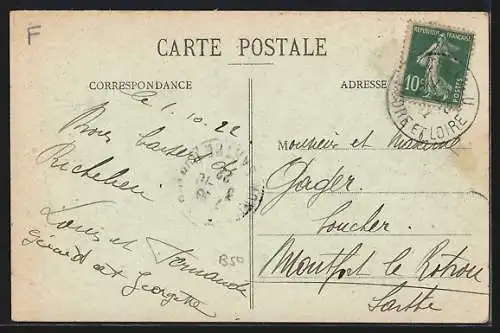 F
CARTE POSTALE
CORRESPONDANCE
ADRESSE
REPUBLIQUE FRANÇAISE
10c
POSTES
INDRE ET LOIRE
le 1.10.22
Bons baisers de
Richelieu
Louis et Fernande
Gérard et Georgette
B50
Monsieur et Madame
Gager
Boucher
Montfort le Rotrou
Sarthe